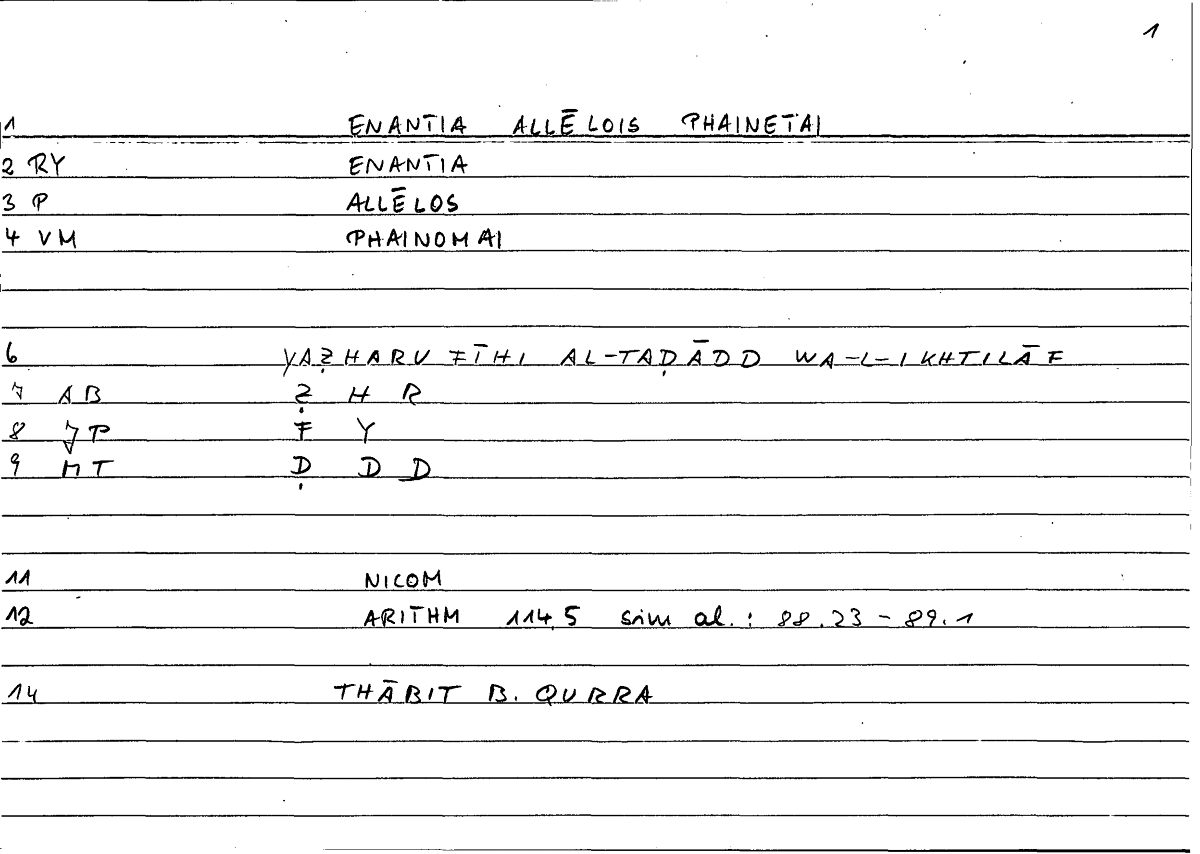 1
1 ENANTIA ALLĒLOIS PHAINETAI
2 RY ENANTIA
3 P ALLĒLOS
4 VM PHAINOMAI
6 YAẒHARU FĪHI AL-TAḌĀDD WA-L-IKHTILĀF
7 AB Ẓ H R
8 JP F Y
9 MT Ḍ D D
11 NICOM
12 ARITHM 114,5 sim al.: 88.23 - 89.1
14 THĀBIT B. QURRA